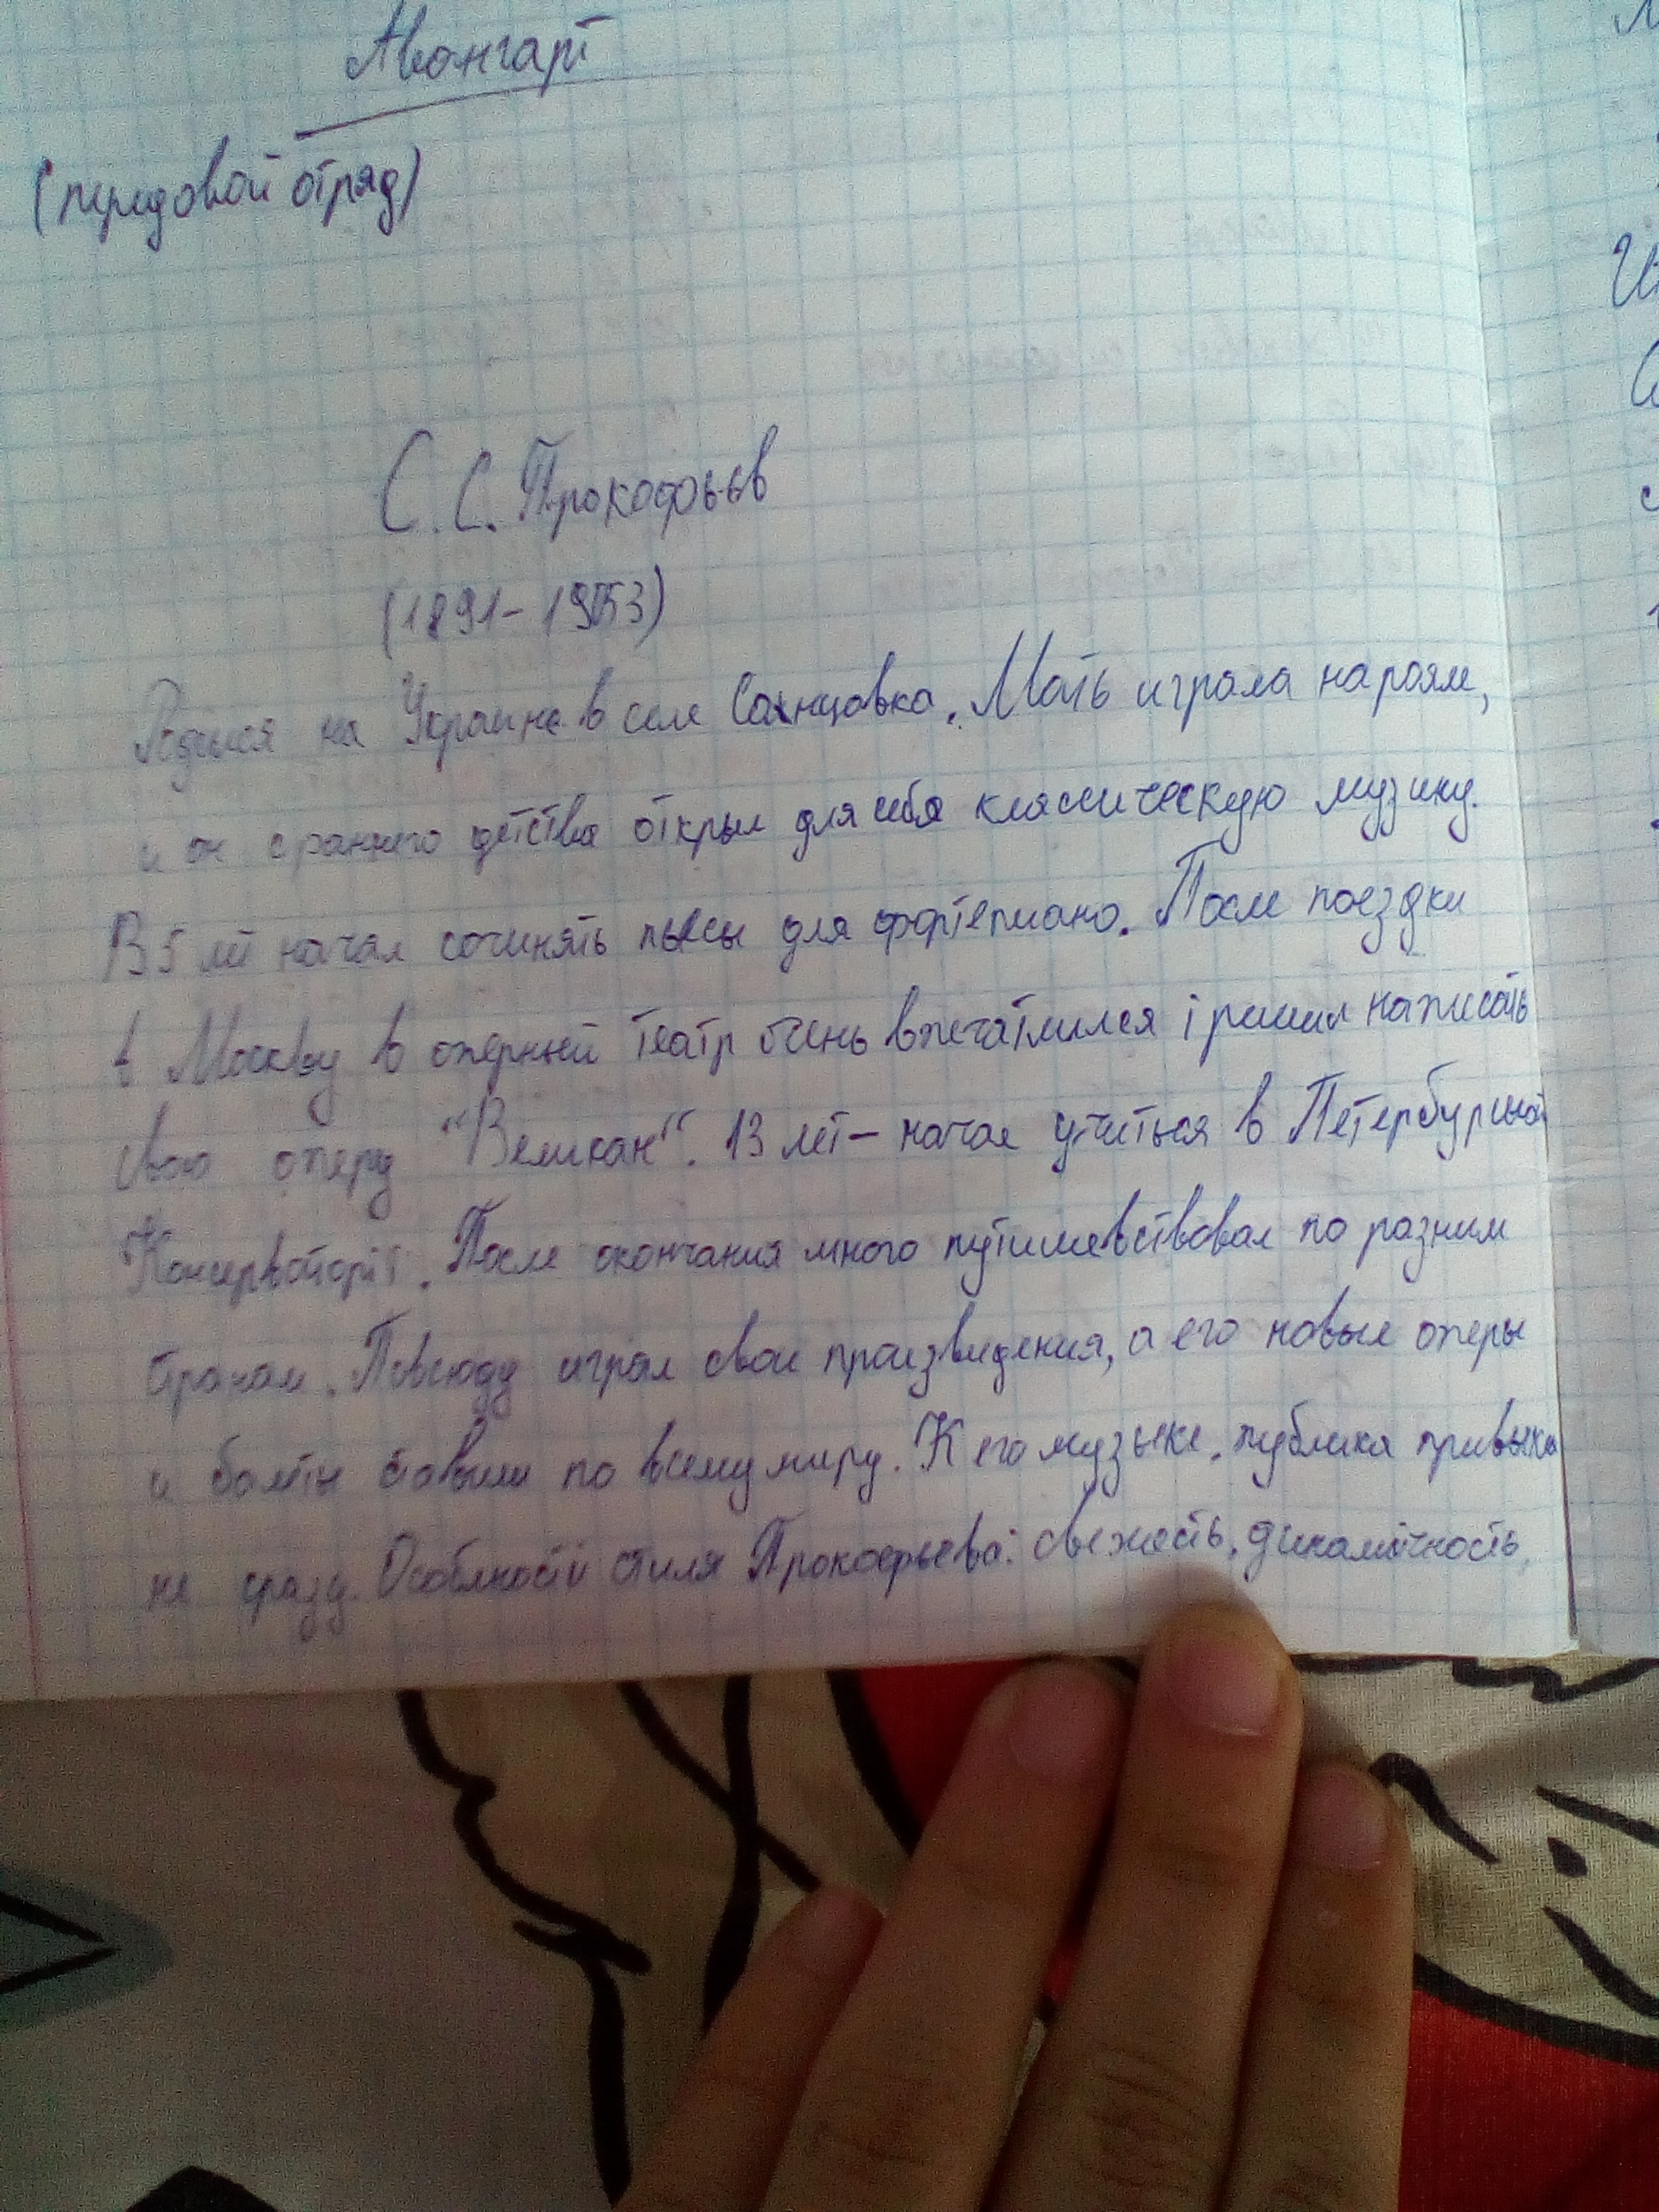 Авонгарт
(передовой отряд)
С. С. Прокофьев
(1891-1953)
Родился на Украине в селе Сонцовка. Мать играла на рояле,
и он с раннего детства открыл для себя классическую музику.
В 5 лет начал сочинять пьесы для фортепиано. После поездки
в Москву в оперный театр очень впечатлился і решил написать
свою оперу "Великан". 13 лет - начал учиться в
Консерваторії. После окончания много путишевствовал по разним
странам. Повсюду играл свои произведения, а его новые оперы
и балеты ставили по всему миру. К его музыке публика привыкла
не сразу. стиля Прокофьева: свежесть, динамічность,